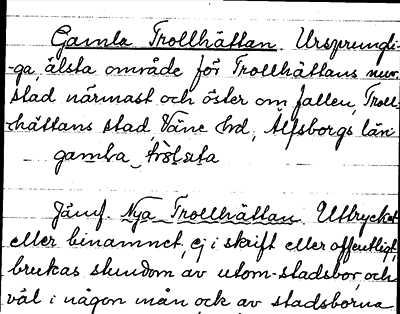 Gamla Trollhättan. Ursprungli-
-ga, älsta område för Trollhättans nuv.
stad närmast och öster om fallen, Troll-
-hättans stad, Väne hd, Älfsborgs län
gamla
Jämf. Nya Trollhättan. Uttrycket
eller binamnet, ej i skrift eller offentligt,
brukas stundom av utom-stadsbor, och
väl i någon mån ock av stadsborna